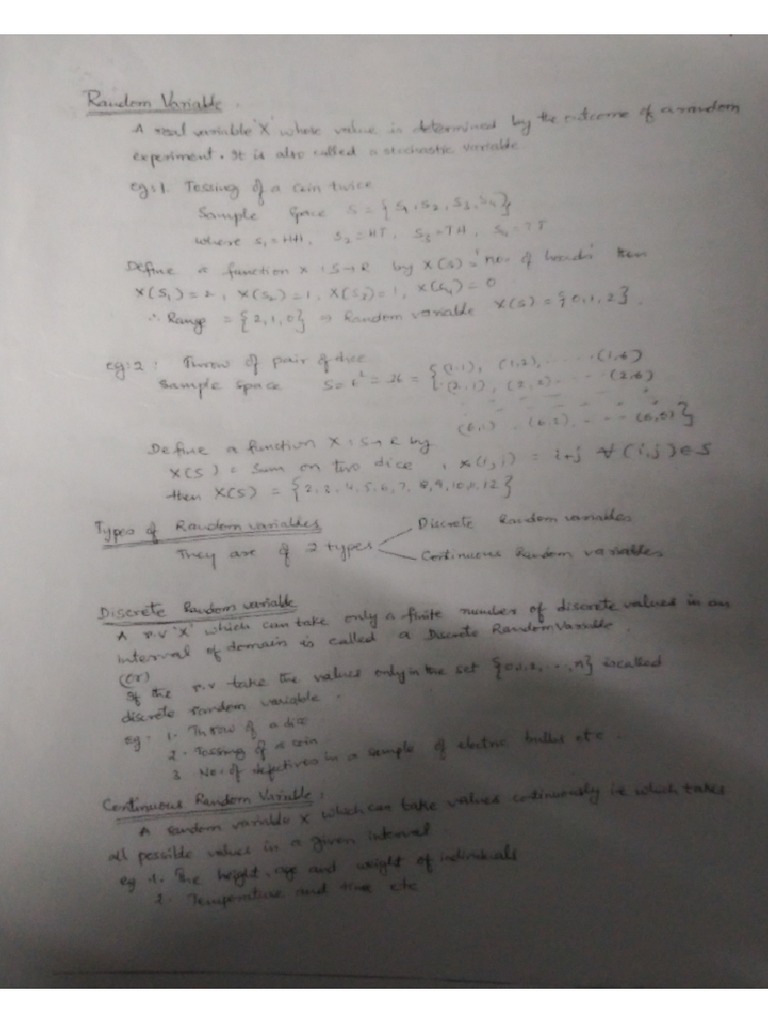 Random Variable.
A real variable 'X' whose value is determined by the outcome of a random
experiment. It is also called a stochastic variable.
eg:1. Tossing of a coin twice
Sample Space S = {S1, S2, S3, S4}
where S1=HH, S2=HT, S3=TH, S4=TT
Define a function X : S→R by X(s) = 'no. of heads' then
X(S1) = 2, X(S2) = 1, X(S3) = 1, X(S4) = 0
∴ Range = {2, 1, 0} ⇒ Random variable X(s) = {0, 1, 2}.
eg:2 : Throw of pair of dice
Sample space S = 6² = 36 = {(1,1), (1,2), ..... (1,6)
(2,1), (2,2) ..... (2,6)
(6,1) . (6,2), ..... (6,6)}
Define a function X : S→R by
X(S) = Sum on two dice , X(i,j) = i+j ∀ (i,j) ∈ S
then X(S) = {2, 3, 4, 5, 6, 7, 8, 9, 10, 11, 12}
Types of Random variables
They are of 2 types
Discrete Random variables
Continuous Random variables
Discrete Random variable
A r.v 'X' which can take only a finite number of discrete values in an
interval of domain is called a Discrete Random Variable.
(or)
If the r.v take the values only in the set {0,1,2,...,n} is called
discrete random variable.
eg. 1. Throw of a dice
2. Tossing of a coin
3. No. of defectives in a sample of electric bulbs etc.
Continuous Random Variable :
A random variable X which can take values continuously i.e which takes
all possible values in a given interval
eg 1. The height, age and weight of individuals
2. Temperature and time etc